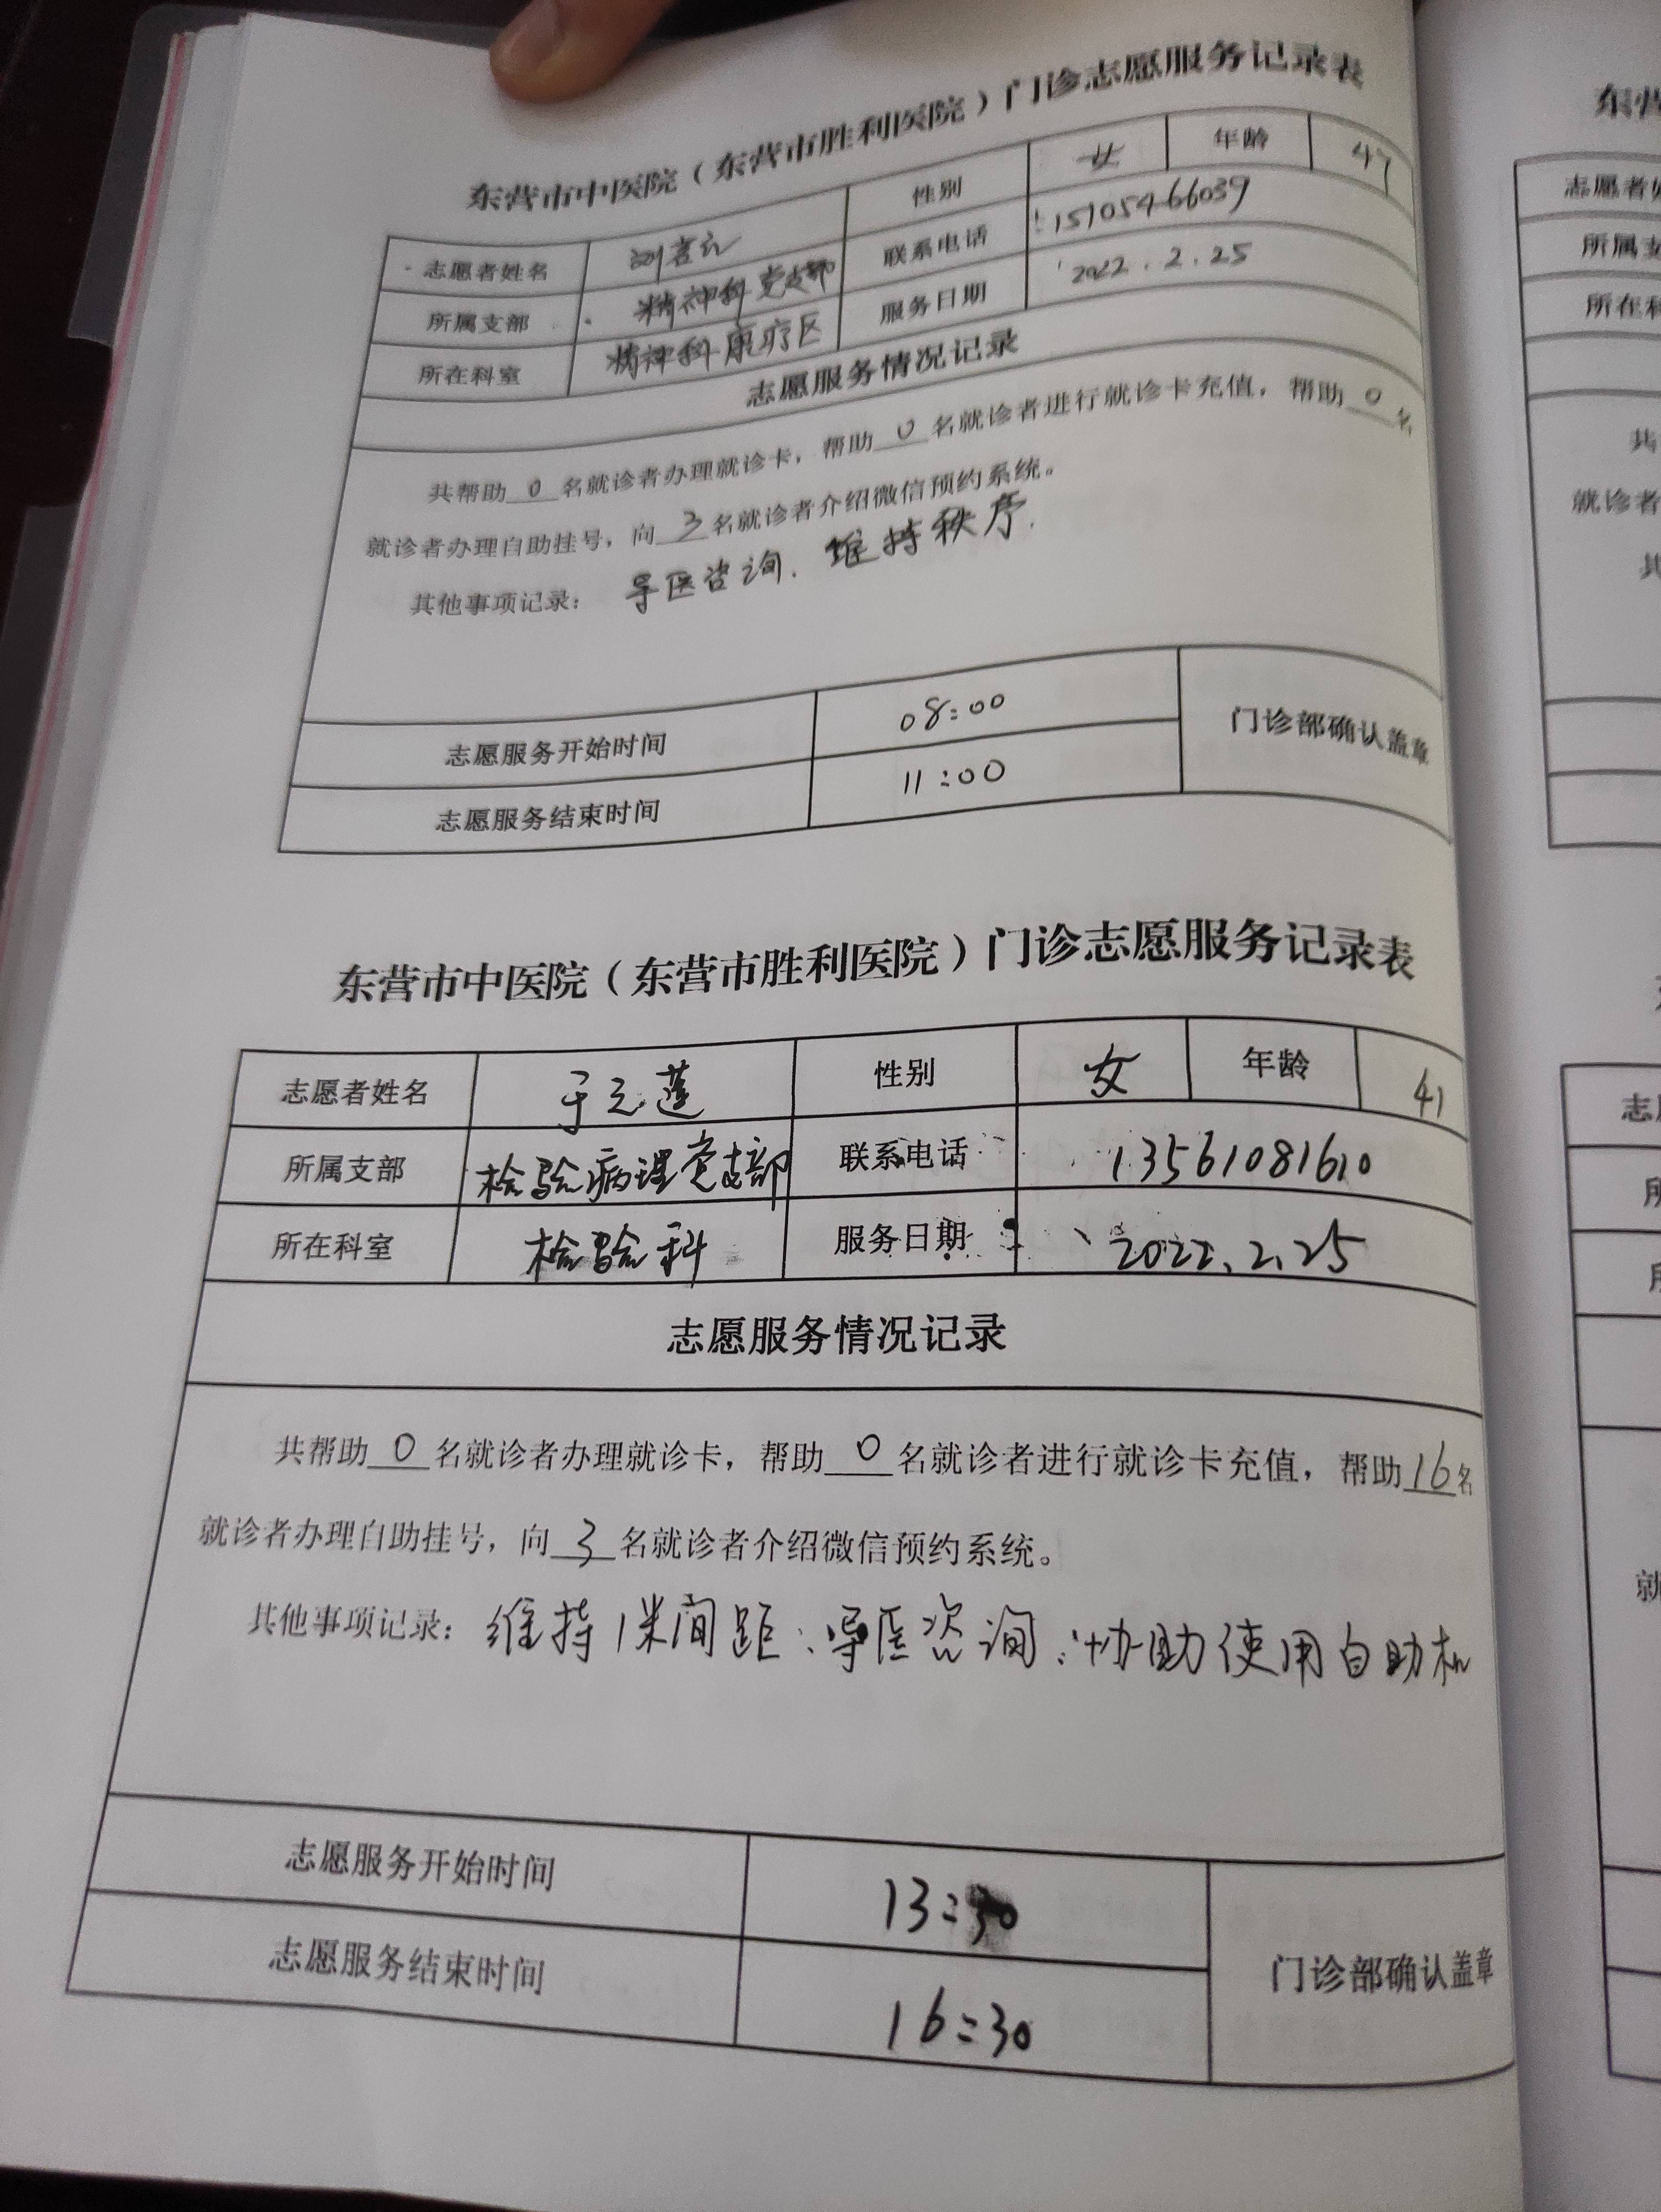 东营市中医院（东营市胜利医院）门诊志愿服务记录表
志愿者姓名 性别 女 年龄 47
所属支部 精神科党支部 联系电话 15105466039
所在科室 精神科康疗区 服务日期 2022.2.25
志愿服务情况记录
共帮助0名就诊者办理就诊卡，帮助0名就诊者进行就诊卡充值，帮助0名
就诊者办理自助挂号，向3名就诊者介绍微信预约系统。
其他事项记录： 导医咨询. 维持秩序.
志愿服务开始时间 08:00 门诊部确认盖章
志愿服务结束时间 11:00
东营市中医院（东营市胜利医院）门诊志愿服务记录表
志愿者姓名 于元莲 性别 女 年龄 41
所属支部 检验病理党支部 联系电话 13561081610
所在科室 检验科 服务日期 2022.2.25
志愿服务情况记录
共帮助0名就诊者办理就诊卡，帮助0名就诊者进行就诊卡充值，帮助16名
就诊者办理自助挂号，向3名就诊者介绍微信预约系统。
其他事项记录：维持1米间距；导医咨询；协助使用自助机
志愿服务开始时间 13:30 门诊部确认盖章
志愿服务结束时间 16:30
东营
志愿者
所属
所在科
共
就诊者
其
志
所
所
就